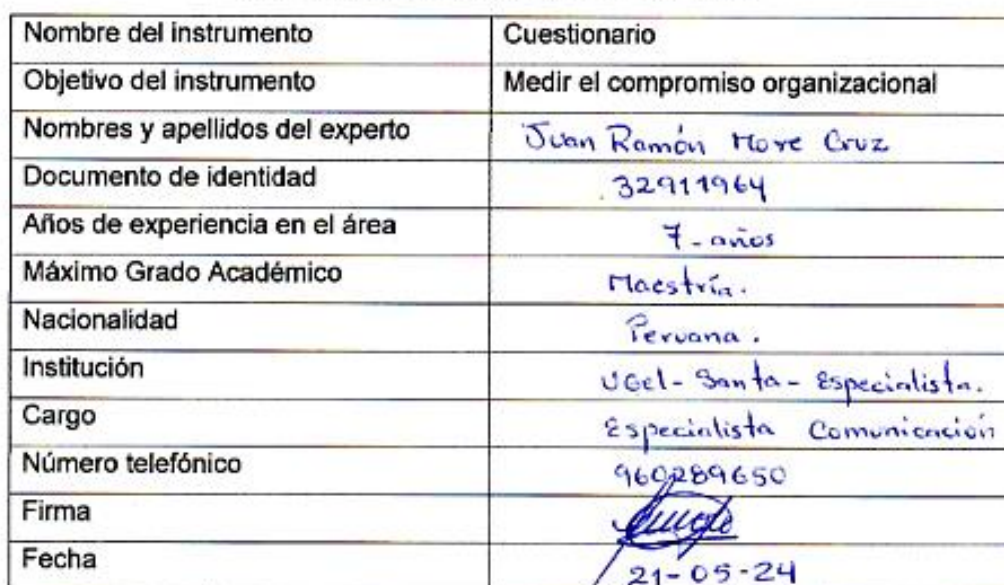 Nombre del instrumento Cuestionario
Objetivo del instrumento Medir el compromiso organizacional
Nombres y apellidos del experto Juan Ramón More Cruz
Documento de identidad 32911964
Años de experiencia en el área 7-años
Máximo Grado Académico Maestría.
Nacionalidad Peruana.
Institución UGel-Santa-Especialista.
Cargo Especialista Comunicación
Número telefónico 960289650
Firma
Fecha 21-05-24